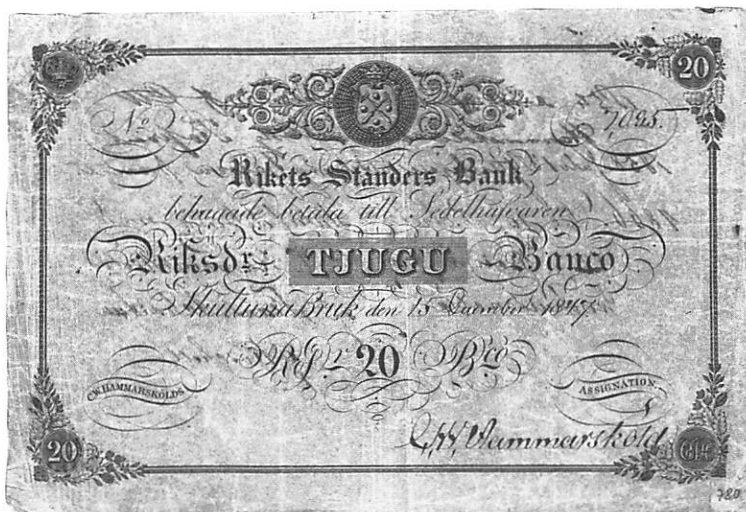 20
No 7085.
Rikets Ständers Bank
behagade betala till Sedelhafvaren
Riksdr TJUGU Banco
Skultuna Bruk den 15 December 1847
Rdr 20 Bco
C.W. HAMMARSKÖLDS ASSIGNATION.
C.W. Hammarskold
20
780